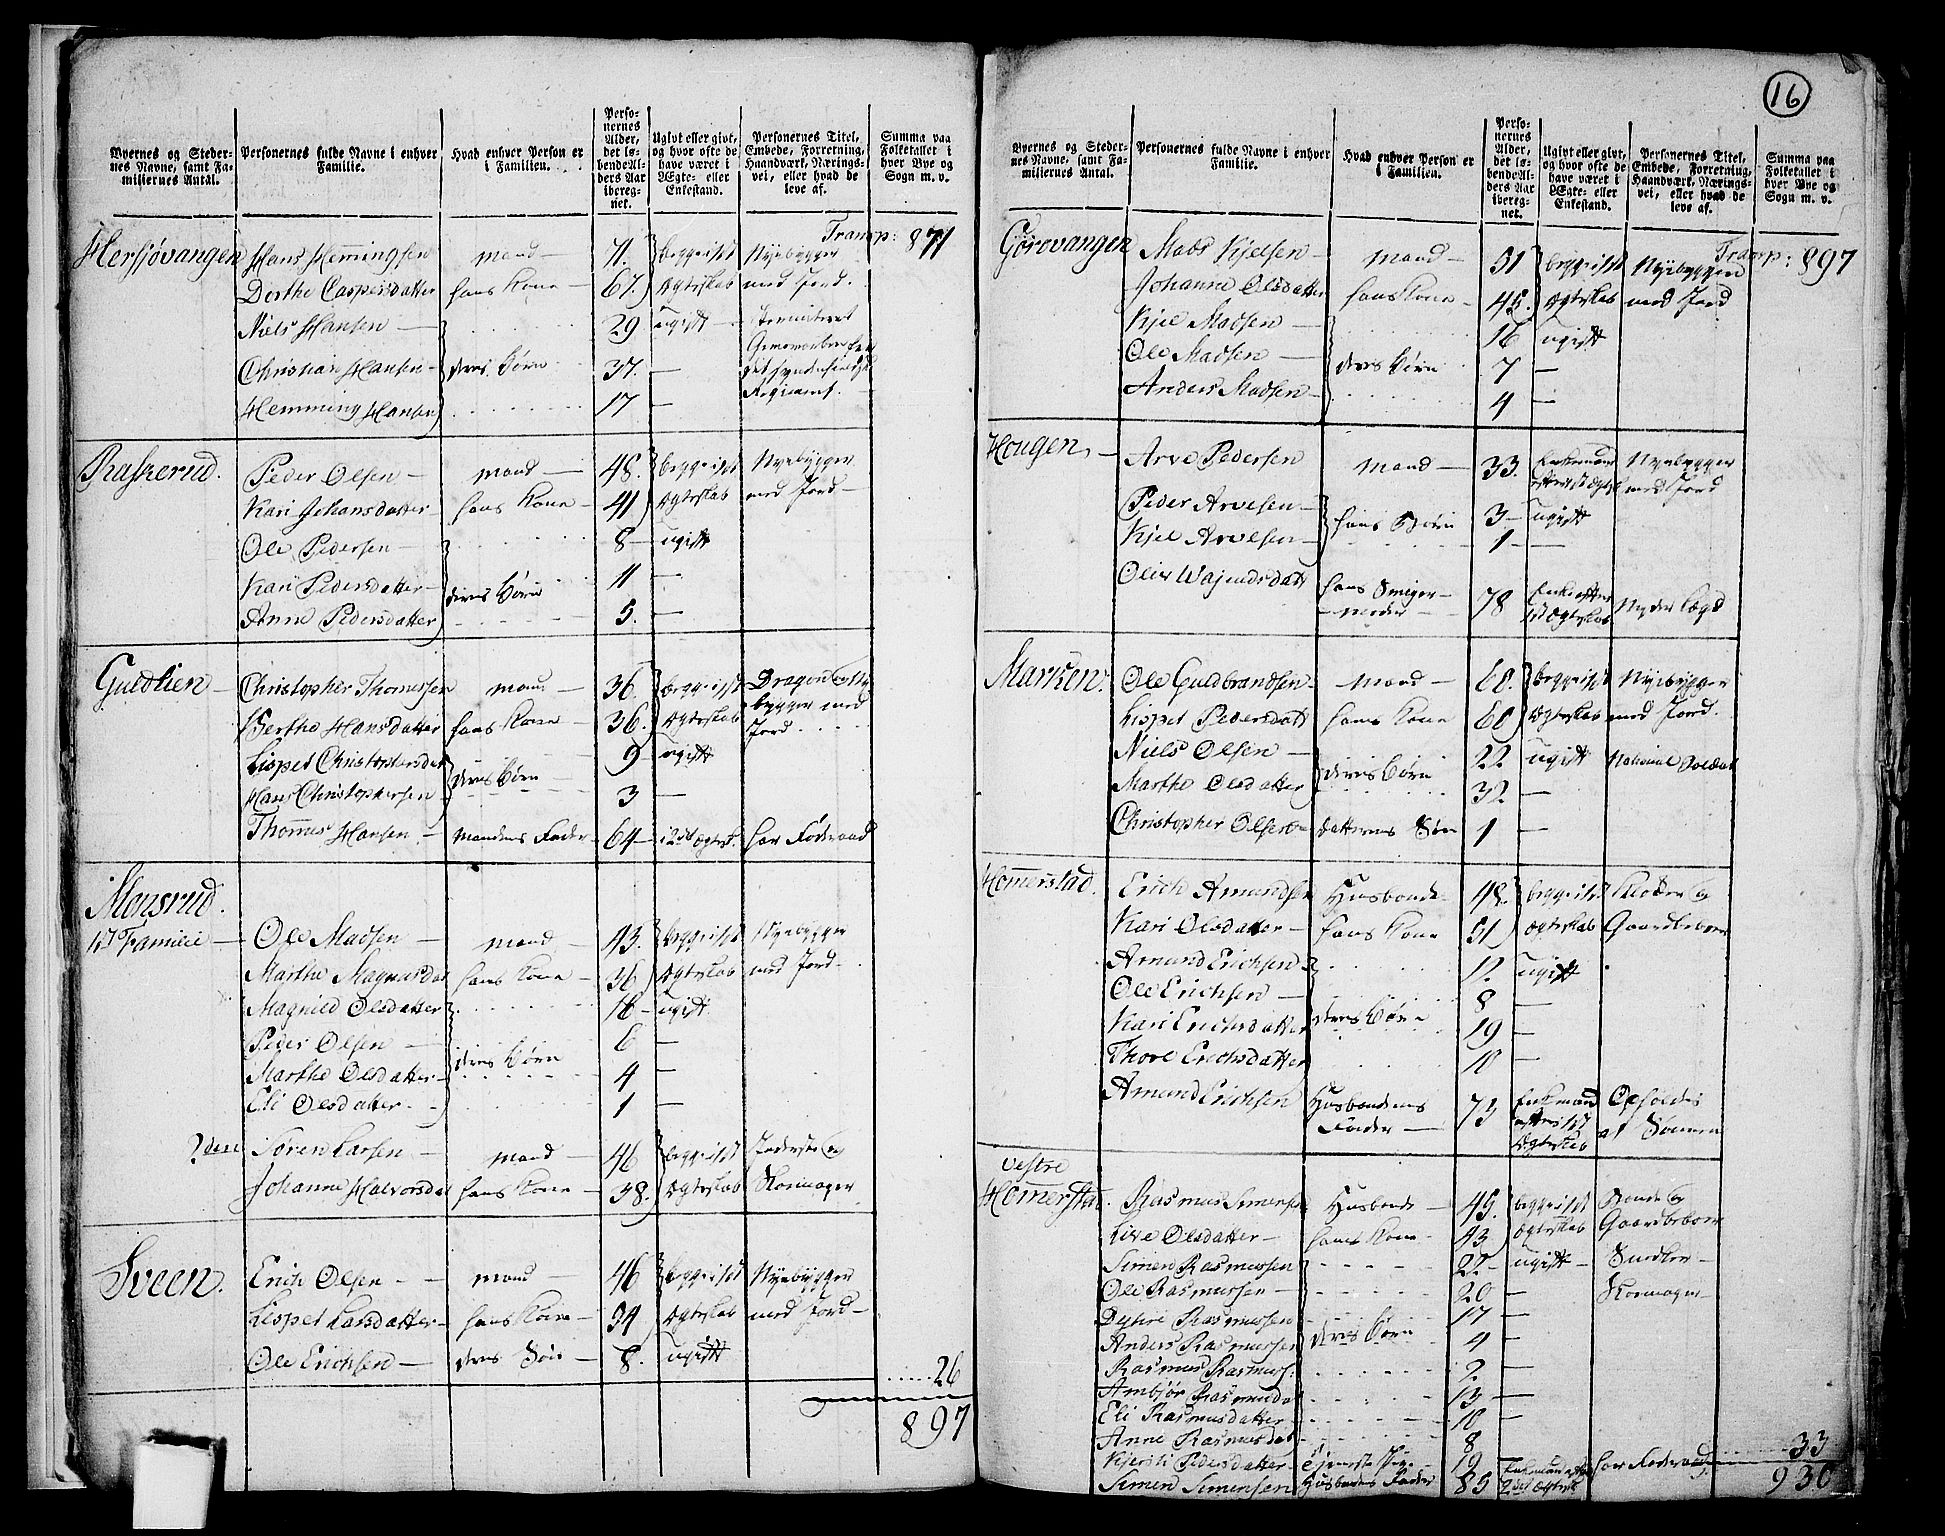 16
Byernes og Stedernes Navne, samt Familiernes Antal.
Personernes fulde Navne i enhver Familie.
Hvad enhver Person er i Familien.
Personernes Alder, det løbende Alders Aar iberegnet.
Ugivt eller givt, og hvor ofte de have været i Ægte- eller Enkestand.
Personernes Titel, Embede, Forretning, Haandværk, Næringsvei, eller hvad de leve af.
Summa paa Folketallet i hver Bye og Sogn m. v.
Transp: 871
Hersjøvangen Hans Hemmingsen mand 71. begge i 1st Nyebygger
Dorthe Caspersdatter hans Kone 67. Ægteskab med Jord.
Niels Hansen 29 ugift
Christian Hansen deres Børn 37. —
Hemming Hansen 17 — Regiment.
Raskerud. Peder Olsen mand 48. begge i 1st Nyebygger
Kari Johansdatter hans Kone 41 Ægteskab med Jord
Ole Pedersen 8 ugift
Kari Pedersdatter deres Børn 11 —
Anne Pedersdatter 5. —
Guldlien Christopher Thomesen mand 36. begge i 1st Dragon og Nyebygger med Jord
Berthe Hansdatter hans Kone 36. Ægteskab
Lispet Christophersdat 9 ugift
Hans Christophersen deres Børn 3 —
Thomes Hansen mandens Fader 64 i 2det Ægtesk. har Føderaad
Monsrud.
1st Familie Ole Madsen mand 43. begge i 1st Nyebygger
Marthe Magnusdat hans Kone 36 Ægteskab med Jord
Magnild Olsdatter 16 ugift
Peder Olsen 6 —
Marthe Olsdatter deres Børn 4 —
Eli Olsdatter 1 —
2den Søren Larsen mand 46 begge i 1st Inderste og
Johanne Halvorsdat hans Kone 38. Ægteskab Skomager
Sveen. Erich Olsen mand 46 begge i 1st Nyebygger
Lispet Larsdatter hans Kone 34 Ægteskab med Jord
Ole Erichsen deres Søn 8. ugift
26
897
Byernes og Stedernes Navne, samt Familiernes Antal.
Personernes fulde Navne i enhver Familie.
Hvad enhver Person er i Familien.
Personernes Alder, det løbende Alders Aar iberegnet.
Ugivt eller givt, og hvor ofte de have været i Ægte- eller Enkestand.
Personernes Titel, Embede, Forretning, Haandværk, Næringsvei, eller hvad de leve af.
Summa paa Folketallet i hver Bye og Sogn m. v.
Transp: 897
Gørovangen Mads Kjelsen mand 51 begge i 1st Nyebygger
Johanne Olsdatter hans Kone 45. Ægteskab med Jord
Kjel Madsen 16 ugift
Ole Madsen deres Børn 7 —
Anders Madsen 4 —
Hougen Arve Pedersen mand 33. Enkemand efter 1st Ægtesk Nyebygger med Jord
Peder Arvesen hans Børn 3 ugift
Kjel Arvesen 1 —
hans Sviger-
moder 78 Enke efter 1st Ægteskab Nyder Lægd
Marken. Ole Guldbrandsen mand 68. begge i 1st Nyebygger
Lispet Pedersdatt hans Kone 60 Ægteskab med Jord.
Niels Olsen 22 ugift National Soldat
Marthe Olsdatter deres Børn 32 —
Christopher Olsen datterens Søn 1 —
Homerstad. Erich Amundsen Husbonde 48. begge i 1st og
Kari Olsdatter hans Kone 51 Ægteskab Gaardbeboer
Amund Erichsen 12 ugift
Ole Erichsen 8 —
Kari Erichsdatter deres Børn 19 —
Thore Erichsdatter 10 —
Amund Erichsen Husbondens Fader 73 Enkemand efter 1st Ægteskab Opholdes af Sønnen
Vestre
Homerstad. Rasmus Simensen Husbonde 45. begge i 1st Bonde og
Live Olsdatter hans Kone 43 Ægteskab Gaardbeboer
Simen Rasmussen 22 ugift Snedker
Ole Rasmussen 20 — Skomager
Rasmussen 17 —
Anders Rasmussen deres Børn 4 —
Rasmus Rasmuss: 2 —
Ambjør Rasmusdat 13 —
Eli Rasmusdatter 10 —
Anne Rasmusdat 8
Kjersti Pedersdatter Tjeneste Pige 19
Simen Simensen Husbondens Fader 85 Enkemand efter 2det Ægtesk har Føderaad
33
930